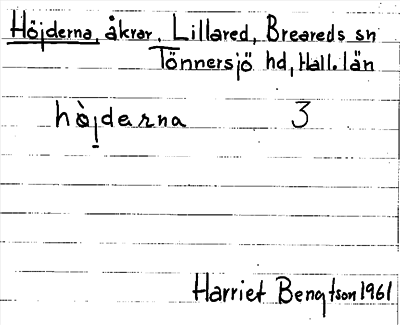 Höjderna, åkrar, Lillared, Breareds sn
Tönnersjö hd, Hall. län
hòjderna 3
Harriet Bengtson 1961